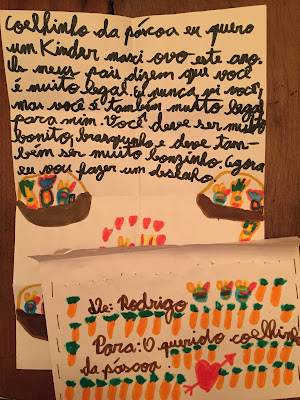 Coelhinho da páscoa eu quero
um Kinder maxi ovo este ano.
Us meus pais dizem que você
é muito legal. Eu nunca vi você,
mas você é também muito legal
para mim. Você deve ser muito
bonito, branquinho e deve tam-
bém ser muito bonzinho. Agora
eu vou fazer um desenho.
De: Rodrigo
Para: O querido coelhinho
da páscoa.